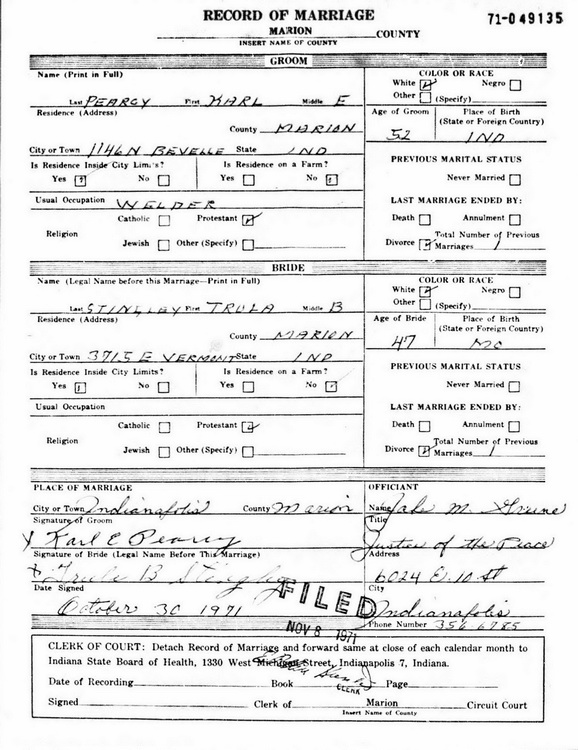 RECORD OF MARRIAGE
71-049135
MARION COUNTY
INSERT NAME OF COUNTY
GROOM
Name (Print in Full)
Last PEARCY First KARL Middle E
COLOR OR RACE
White Negro
Other (Specify)
Residence (Address)
County MARION
Age of Groom 52
Place of Birth (State or Foreign Country) IND
City or Town 1146 N BEVELLE State IND
Is Residence Inside City Limits? Is Residence on a Farm?
Yes No Yes No
PREVIOUS MARITAL STATUS
Never Married
Usual Occupation WELDER
LAST MARRIAGE ENDED BY:
Religion
Catholic Protestant
Jewish Other (Specify)
Death Annulment
Divorce Total Number of Previous Marriages 1
BRIDE
Name (Legal Name before this Marriage—Print in Full)
Last First TRULA Middle B
COLOR OR RACE
White Negro
Other (Specify)
Residence (Address)
County MARION
Age of Bride 47
Place of Birth (State or Foreign Country) MO
City or Town 3715 E VERMONT State IND
Is Residence Inside City Limits? Is Residence on a Farm?
Yes No Yes No
PREVIOUS MARITAL STATUS
Never Married
Usual Occupation
LAST MARRIAGE ENDED BY:
Religion
Catholic Protestant
Jewish Other (Specify)
Death Annulment
Divorce Total Number of Previous Marriages 1
PLACE OF MARRIAGE
City or Town Indianapolis County Marion
Signature of Groom
X Karl E Pearcy
Signature of Bride (Legal Name Before This Marriage)
X B
Date Signed
October 30 1971
OFFICIANT
Name Jake M.
Title
Justice of the Peace
Address
6024 E. 10 St
City
Indianapolis
Phone Number 356-6785
FILED
NOV 8 1971
CLERK
CLERK OF COURT: Detach Record of Marriage and forward same at close of each calendar month to
Indiana State Board of Health, 1330 West Michigan Street, Indianapolis 7, Indiana.
Date of Recording Book Page
Signed Clerk of Marion Circuit Court
Insert Name of County